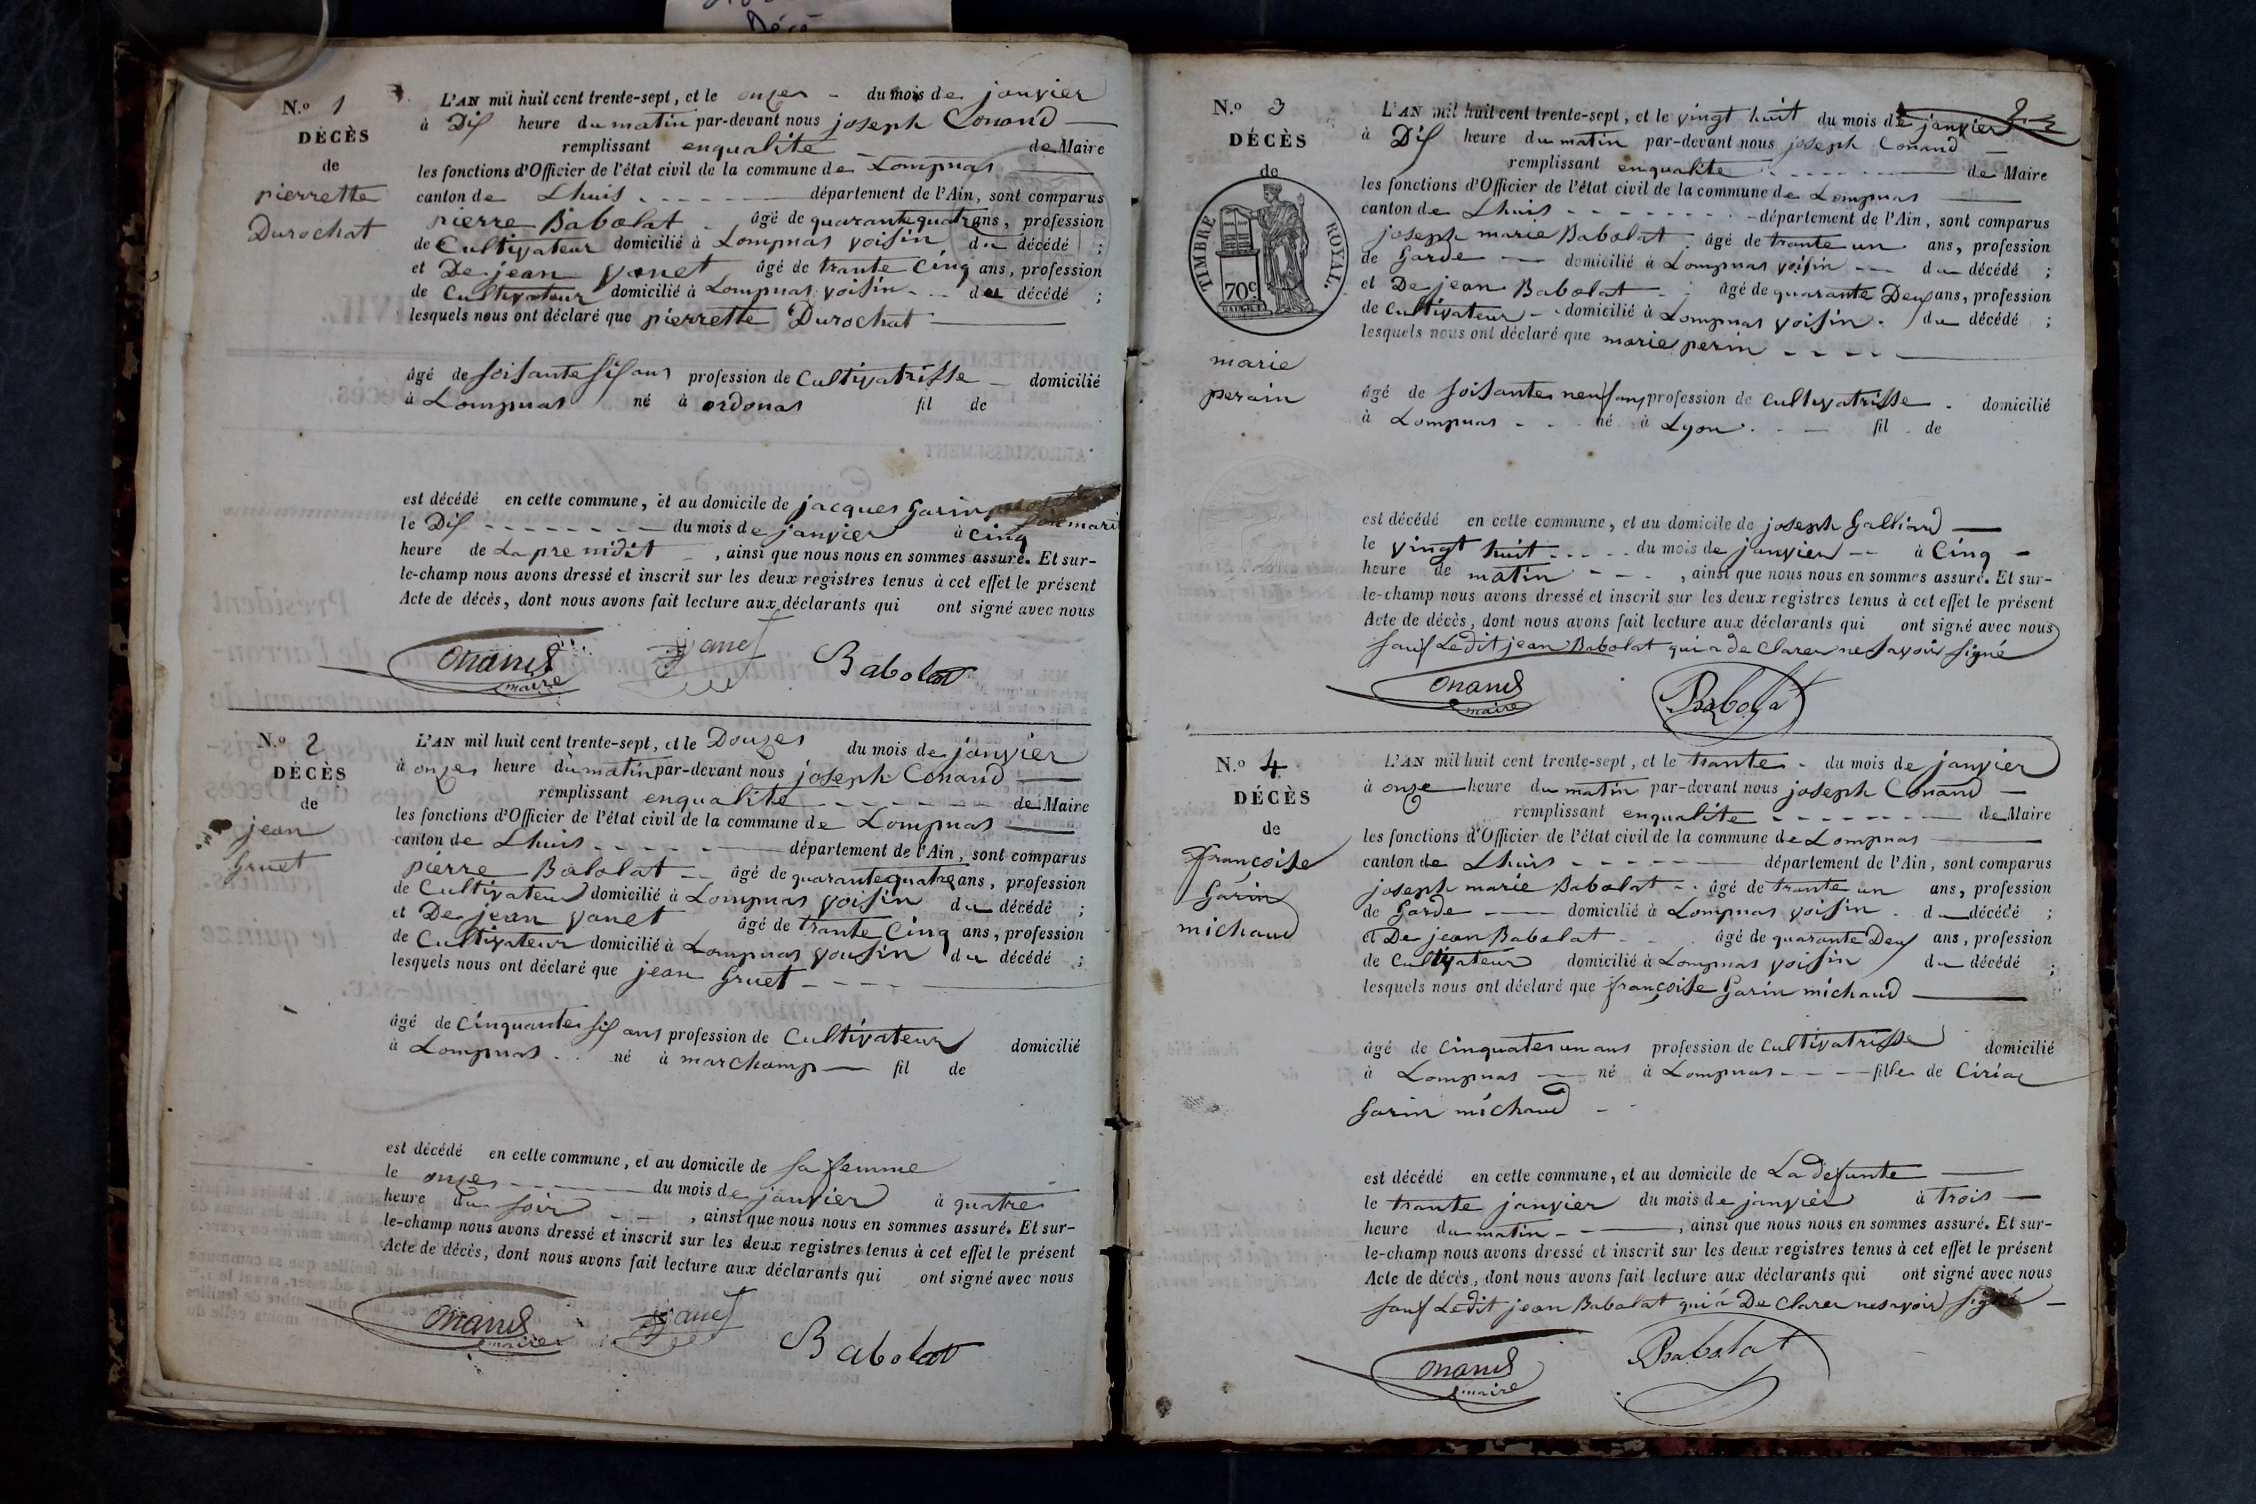 Décè
N.o 1
DÉCÈS
de
pierrette
Durochat
L'AN mil huit cent trente-sept, et le onzes - du mois de janvier
à Dis heure du matin par-devant nous joseph Conand
remplissant enqualite de Maire
les fonctions d'Officier de l'état civil de la commune de Lompnas
canton de Lhuis département de l'Ain, sont comparus
pierre Babolat âgé de quarante quatre ans, profession
de Cultivateur domicilié à Lompnas voisin du décédé ;
et De jean yanet âgé de trante Cinq ans, profession
de Cultivateur domicilié à Lompnas voisin du décédé ;
lesquels nous ont déclaré que pierrette Durochat
âgé de soisante sis ans profession de Cultivatrisse domicilié
à Lompnas né à ordonas fil de
est décédé en cette commune, et au domicile de jacques Garin
son mari
le Dis du mois de janvier à Cinq
heure de La pre midit, ainsi que nous nous en sommes assuré. Et sur-
le-champ nous avons dressé et inscrit sur les deux registres tenus à cet effet le présent
Acte de décès, dont nous avons fait lecture aux déclarants qui ont signé avec nous
Onand maire yanet Babolat
N.o 2
DÉCÈS
de
jean
Gruet
L'AN mil huit cent trente-sept, et le Douzes du mois de janvier
à onzes heure du matin par-devant nous joseph Conand
remplissant enqualite de Maire
les fonctions d'Officier de l'état civil de la commune de Lompnas
canton de Lhuis département de l'Ain, sont comparus
pierre Babolat âgé de quarante quatre ans, profession
de Cultivateur domicilié à Lompnas voisin du décédé ;
et De jean yanet âgé de trante Cinq ans, profession
de Cultivateur domicilié à Lompnas vousin du décédé ;
lesquels nous ont déclaré que jean Gruet
âgé de Cinquantes sis ans profession de Cultivateur domicilié
à Lompnas né à marchamp fil de
est décédé en cette commune, et au domicile de sa femme
le onzes du mois de janvier à quatre
heure du soir, ainsi que nous nous en sommes assuré. Et sur-
le-champ nous avons dressé et inscrit sur les deux registres tenus à cet effet le présent
Acte de décès, dont nous avons fait lecture aux déclarants qui ont signé avec nous
Onand maire yanet Babolat
N.o 3
DÉCÈS
de
TIMBRE ROYAL.
70c
marie
perain
L'AN mil huit cent trente-sept, et le vingt huit du mois de janvier
à Dis heure du matin par-devant nous joseph Conand
remplissant enqualite de Maire
les fonctions d'Officier de l'état civil de la commune de Lompnas
canton de Lhuis département de l'Ain, sont comparus
joseph marie Babolat âgé de trante un ans, profession
de Garde domicilié à Lompnas voisin du décédé ;
et De jean Babolat âgé de quarante Deus ans, profession
de Cultivateur domicilié à Lompnas voisin du décédé ;
lesquels nous ont déclaré que marie perin
âgé de soisantes neuf ans profession de cultivatrisse domicilié
à Lompnas né à Lyon fil de
est décédé en cette commune, et au domicile de joseph Galliand
le vingt huit du mois de janvier à Cinq
heure de matin, ainsi que nous nous en sommes assuré. Et sur-
le-champ nous avons dressé et inscrit sur les deux registres tenus à cet effet le présent
Acte de décès, dont nous avons fait lecture aux déclarants qui ont signé avec nous
sauf Ledit jean Babolat qui a de Clarer ne savoir signé
Onand maire Babolat
N.o 4
DÉCÈS
de
françoise
Garin
michaud
L'AN mil huit cent trente-sept, et le trante du mois de janvier
à onze heure du matin par-devant nous joseph Conand
remplissant enqualite de Maire
les fonctions d'Officier de l'état civil de la commune de Lompnas
canton de Lhuis département de l'Ain, sont comparus
joseph marie Babolat âgé de trante un ans, profession
de Garde domicilié à Lompnas voisin du décédé ;
et De jean Babolat âgé de quarante Deus ans, profession
de Cultivateur domicilié à Lompnas voisin du décédé ;
lesquels nous ont déclaré que françoise Garin michaud
âgé de Cinquates un ans profession de Cultivatrisse domicilié
à Lompnas né à Lompnas fille de Ciriac
Garin michaud
est décédé en cette commune, et au domicile de La defunte
le trante janvier du mois de janvier à trois
heure du matin, ainsi que nous nous en sommes assuré. Et sur-
le-champ nous avons dressé et inscrit sur les deux registres tenus à cet effet le présent
Acte de décès, dont nous avons fait lecture aux déclarants qui ont signé avec nous
sauf Ledit jean Babolat qui a De Clarer ne savoir signé
Onand maire Babolat